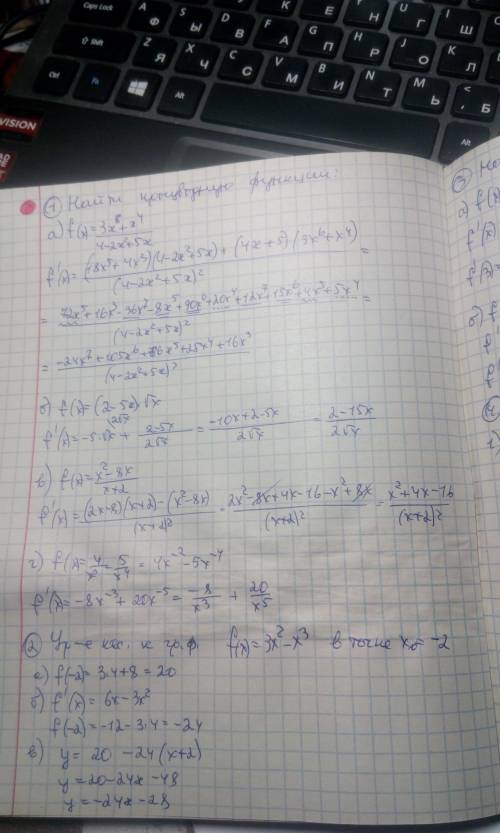 Caps Lock
Shift
Ctrl
Fn
Alt
Alt
VISION
① Найти производную функции:
а) f(x)=3x⁶+x⁴/4-2x+5x
f'(x)=(18x⁵+4x³)(4-2x²+5x)+(4x+5)(3x⁶+x⁴)/(4-2x²+5x)² =
= 72x⁵+16x³-36x⁷-8x⁵+90x⁶+20x⁴+12x⁷+15x⁶+4x⁵+5x⁴/(4-2x²+5x)² =
= -24x⁷+105x⁶+86x⁵+25x⁴+16x³/(4-2x²+5x)²
б) f(x)=(2-5x)√x
f'(x)=-5·√x + 2-5x/2√x = -10x+2-5x/2√x = 2-15x/2√x
в) f(x)=x²-8x/x+2
f'(x)=(2x+8)(x+2)-(x²-8x)/(x+2)² = 2x²-8x+4x-16-x²+8x/(x+2)² = x²+4x-16/(x+2)²
г) f(x)=4/x²-5/x⁴ = 4x⁻²-5x⁻⁴
f'(x)=-8x⁻³+20x⁻⁵ = -8/x³ + 20/x⁵
② Ур-е кас. к гр.ф. f(x)=3x²-x³ в точке x₀=-2
а) f(-2)=3·4+8=20
б) f'(x)=6x-3x²
f(-2)=-12-3·4=-24
в) y=20-24(x+2)
y=20-24x-48
y=-24x-28
③
а) f(x)
f'(x)
f'(x)=
б) f
f'
f'
④